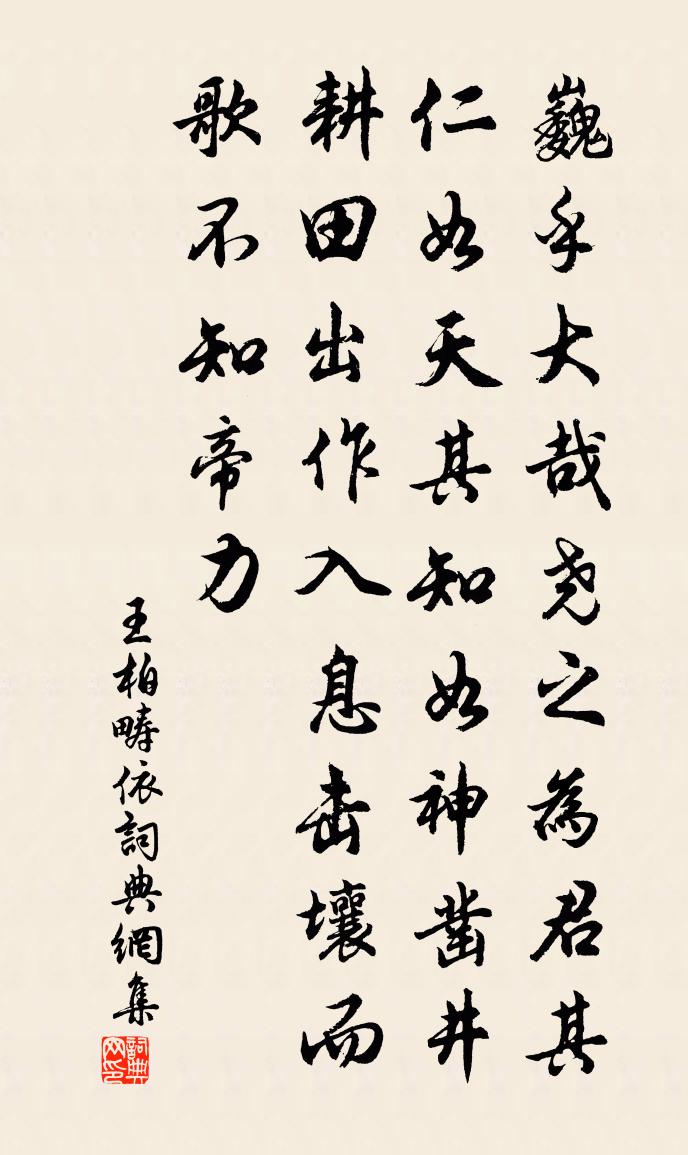 巍乎大哉尧之為君其
仁如天其知如神凿井
耕田出作入息击壤而
歌不知帝力
王柏畴依詞典網集
詞典网印